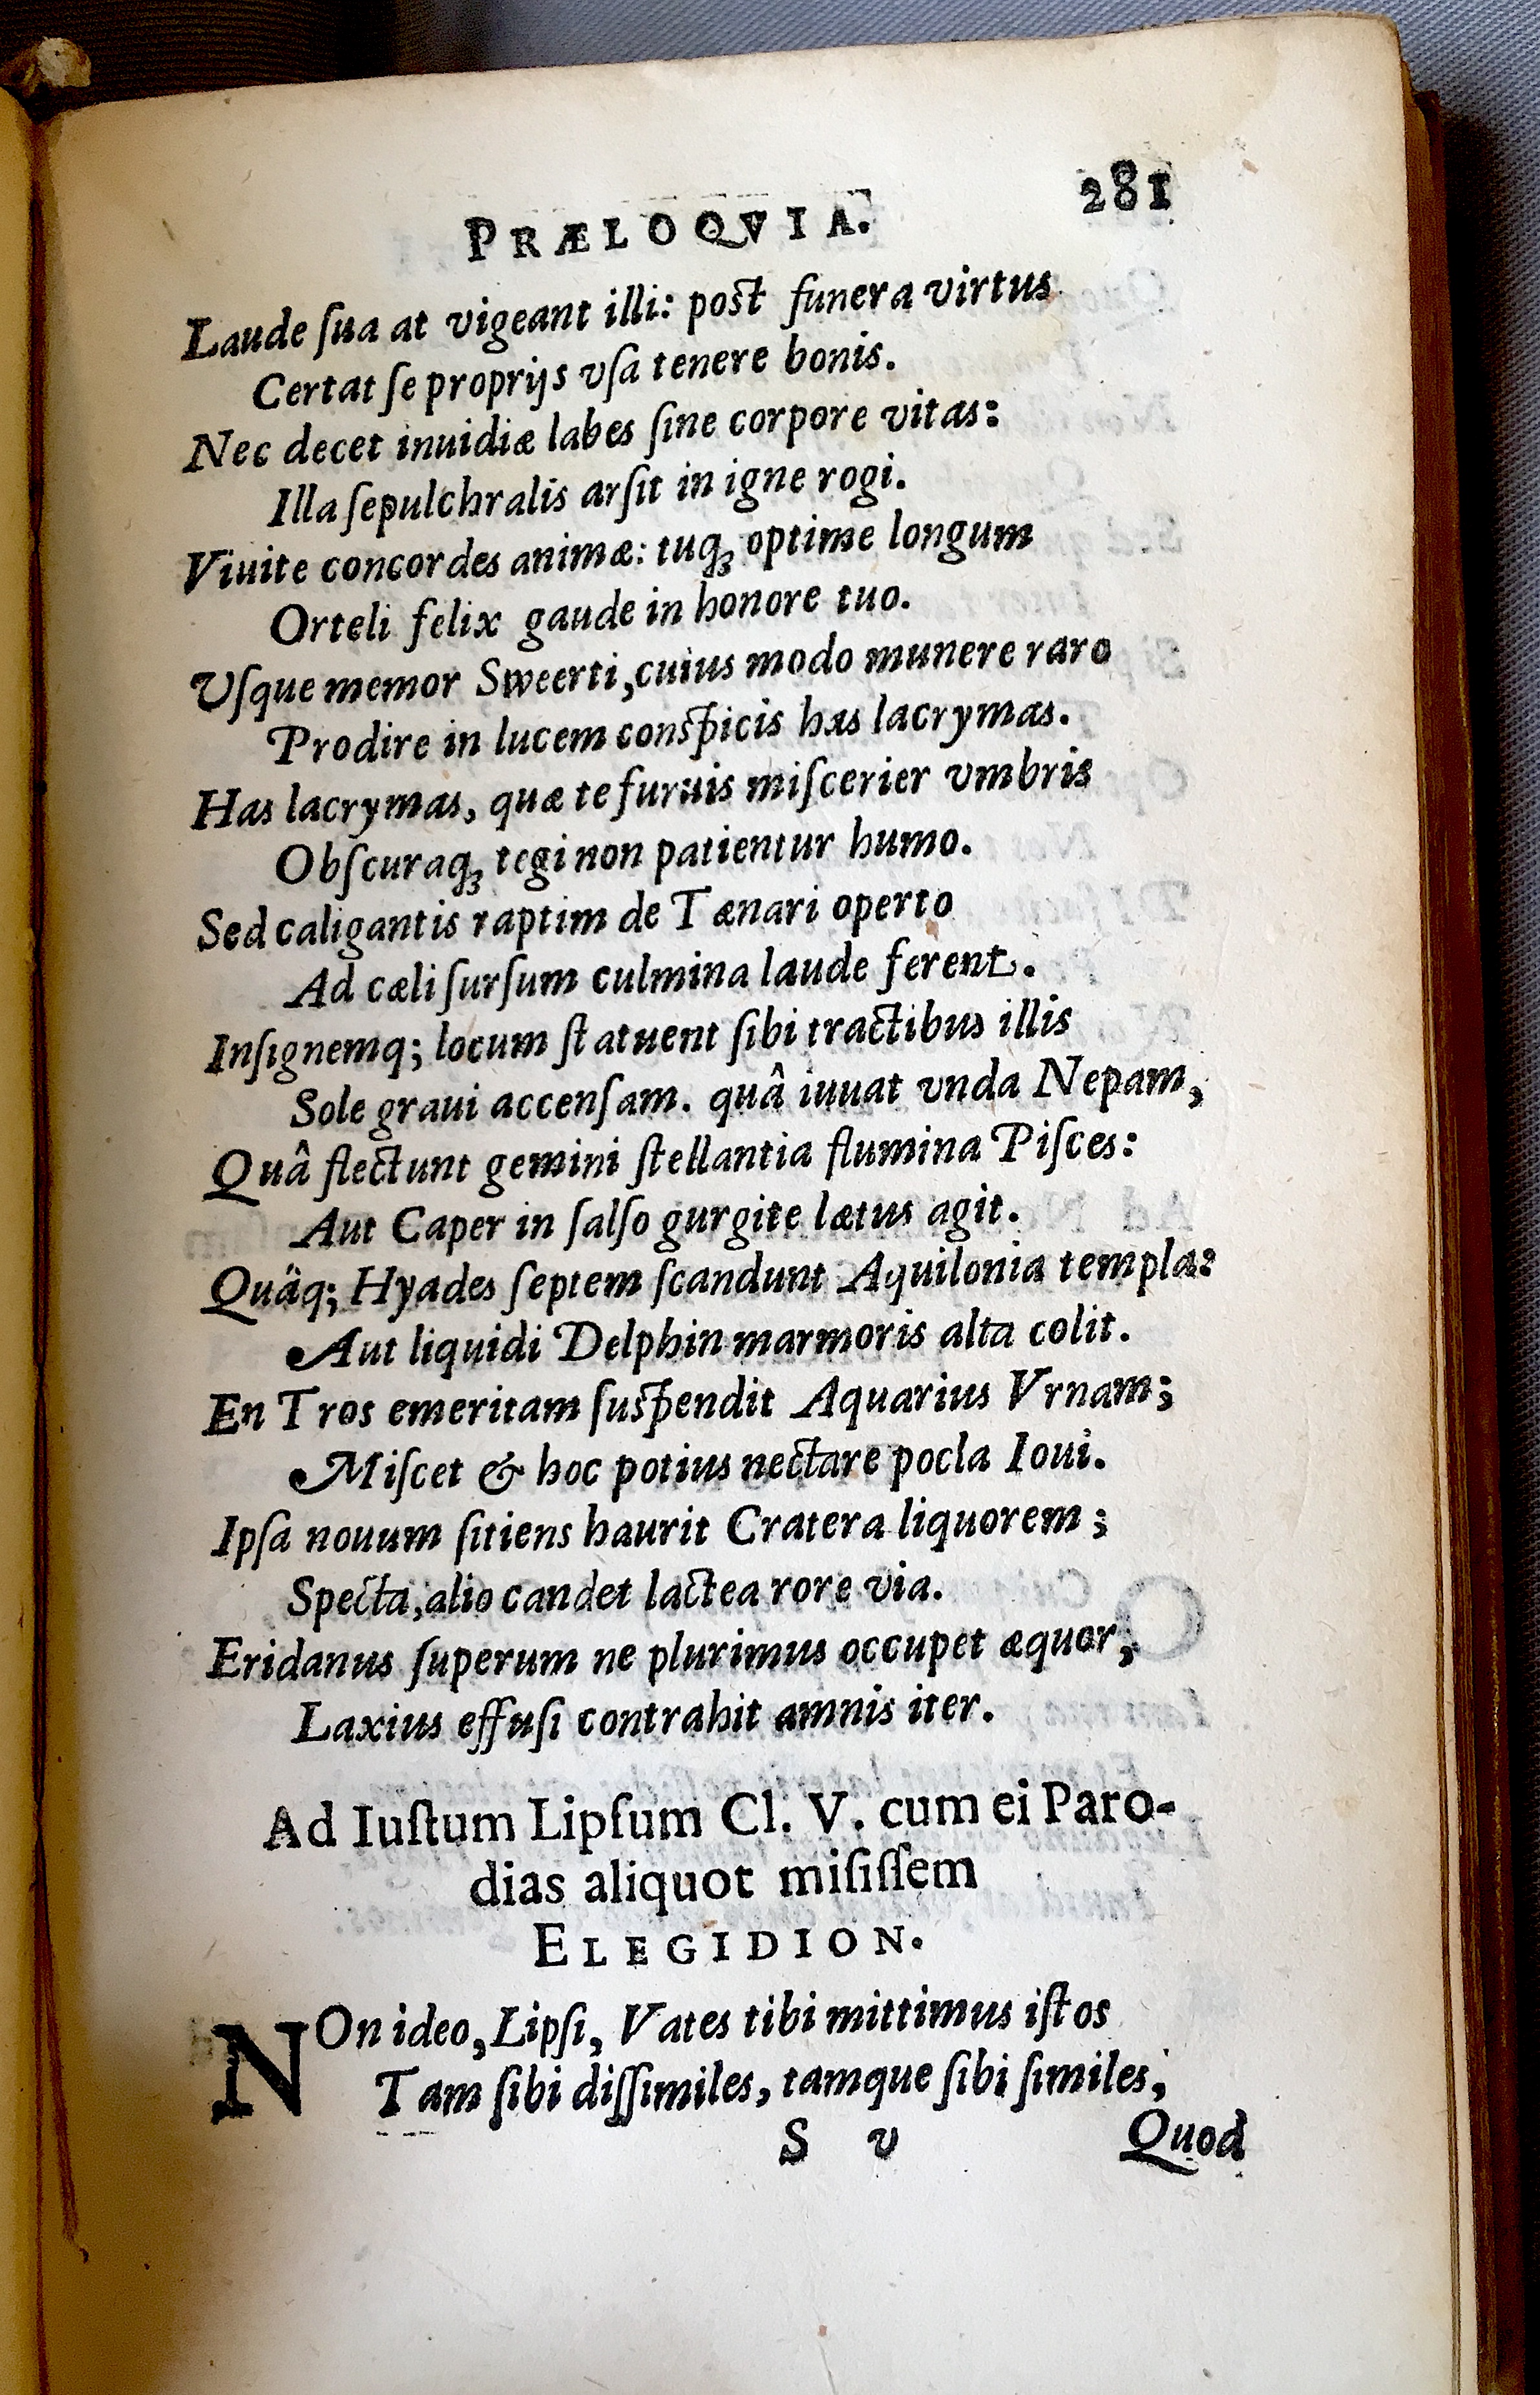 PRÆLOQVIA. 281
Laude ſua at vigeant illi: poſt funera virtus
Certat ſe proprijs vſa tenere bonis.
Nec decet inuidiæ labes ſine corpore vitas:
Illa ſepulchralis arſit in igne rogi.
Viuite concordes animæ: tuq́ꝫ optime longum
Orteli felix gaude in honore tuo.
Vſque memor Sweerti, cuius modo munere raro
Prodire in lucem conſpicis has lacrymas.
Has lacrymas, quæ te furuis miſcerier vmbris
Obſcuraqꝫ tegi non patientur humo.
Sed caligantis raptim de Tænari operto
Ad cæli ſurſum culmina laude ferent.
Inſignemq; locum ſtatuent ſibi tractibus illis
Sole graui accenſam. quâ iuuat vnda Nepam,
Quâ flectunt gemini ſtellantia flumina Piſces:
Aut Caper in ſalſo gurgite lætus agit.
Quäq; Hyades ſeptem ſcandunt Aquilonia templa:
Aut liquidi Delphin marmoris alta colit.
En Tros emeritam ſuſpendit Aquarius Vrnam;
Miſcet & hoc potius nectare pocla Ioui.
Ipſa nouum ſitiens haurit Cratera liquorem;
Specta, alio candet lactea rore via.
Eridanus ſuperum ne plurimus occupet æquor,
Laxius effuſi contrahit amnis iter.
Ad Iuſtum Lipſum Cl. V. cum ei Paro-
dias aliquot miſiſſem
ELEGIDION.
NOn ideo, Lipſi, Vates tibi mittimus iſtos
Tam ſibi diſſimiles, tamque ſibi ſimiles,
S v Quod